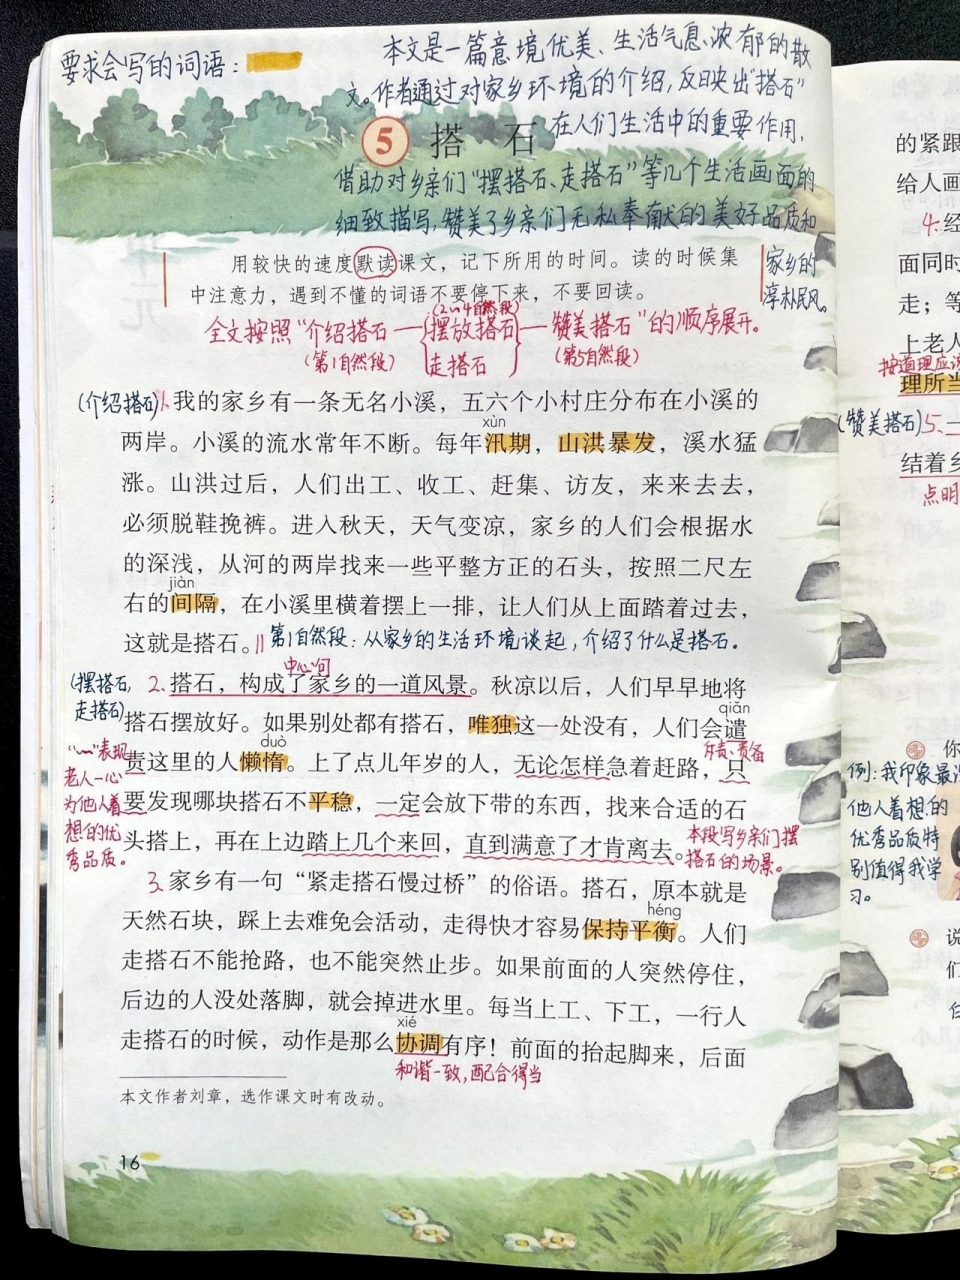 要求会写的词语：
本文是一篇意境优美、生活气息浓郁的散
文。作者通过对家乡环境的介绍,反映出"搭石"
在人们生活中的重要作用,
借助对乡亲们"摆搭石、走搭石"等几个生活画面的
细致描写,赞美了乡亲们无私奉献的美好品质和
家乡的
淳朴民风。
5 搭石
用较快的速度默读课文，记下所用的时间。读的时候集
中注意力，遇到不懂的词语不要停下来，不要回读。
(2~4自然段)
全文按照"介绍搭石—{摆放搭石}—赞美搭石"的顺序展开。
(第1自然段) 走搭石 (第5自然段)
(介绍搭石)1.我的家乡有一条无名小溪，五六个小村庄分布在小溪的
xùn
两岸。小溪的流水常年不断。每年汛期，山洪暴发，溪水猛
涨。山洪过后，人们出工、收工、赶集、访友，来来去去，
必须脱鞋挽裤。进入秋天，天气变凉，家乡的人们会根据水
的深浅，从河的两岸找来一些平整方正的石头，按照二尺左
jiàn
右的间隔，在小溪里横着摆上一排，让人们从上面踏着过去，
这就是搭石。‖第1自然段：从家乡的生活环境谈起，介绍了什么是搭石。
中心句
(摆搭石,
走搭石)
2.搭石，构成了家乡的一道风景。秋凉以后，人们早早地将
qiǎn
搭石摆放好。如果别处都有搭石，唯独这一处没有，人们会谴
duò
责这里的人懒惰。上了点儿年岁的人，无论怎样急着赶路，只
斥责、责备
要发现哪块搭石不平稳，一定会放下带的东西，找来合适的石
头搭上，再在上边踏上几个来回，直到满意了才肯离去。
本段写乡亲们摆
搭石的场景。
"﹏"表现
老人一心
为他人着
想的优
秀品质。
3.家乡有一句“紧走搭石慢过桥”的俗语。搭石，原本就是
天然石块，踩上去难免会活动，走得快才容易保持平衡。人们
héng
走搭石不能抢路，也不能突然止步。如果前面的人突然停住，
后边的人没处落脚，就会掉进水里。每当上工、下工，一行人
xié
走搭石的时候，动作是那么协调有序！前面的抬起脚来，后面
和谐一致,配合得当
本文作者刘章，选作课文时有改动。
16
的紧跟
给人画
4.经
面同时
走；等
上老人
按道理应该
理所当
(赞美搭石)5.一
结着乡
点明
你
例:我印象最
他人着想的
优秀品质特
别值得我学
习。
说
们